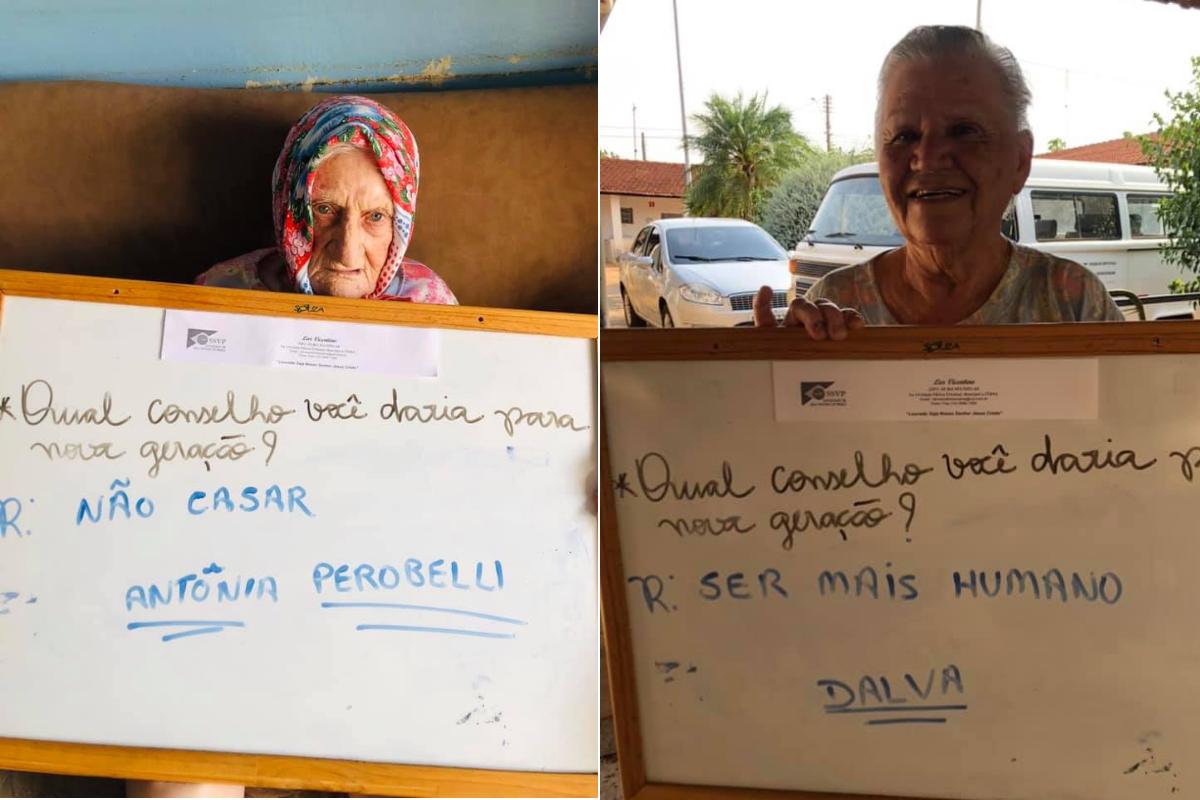 SSVP
Lar Vicentino
"Louvado Seja Nosso Senhor Jesus Cristo"
* Qual conselho você daria para
nova geração?
R: NÃO CASAR
ANTÔNIA PEROBELLI
SSVP
Lar Vicentino
"Louvado Seja Nosso Senhor Jesus Cristo"
* Qual conselho você daria p
nova geração?
R: SER MAIS HUMANO
DALVA